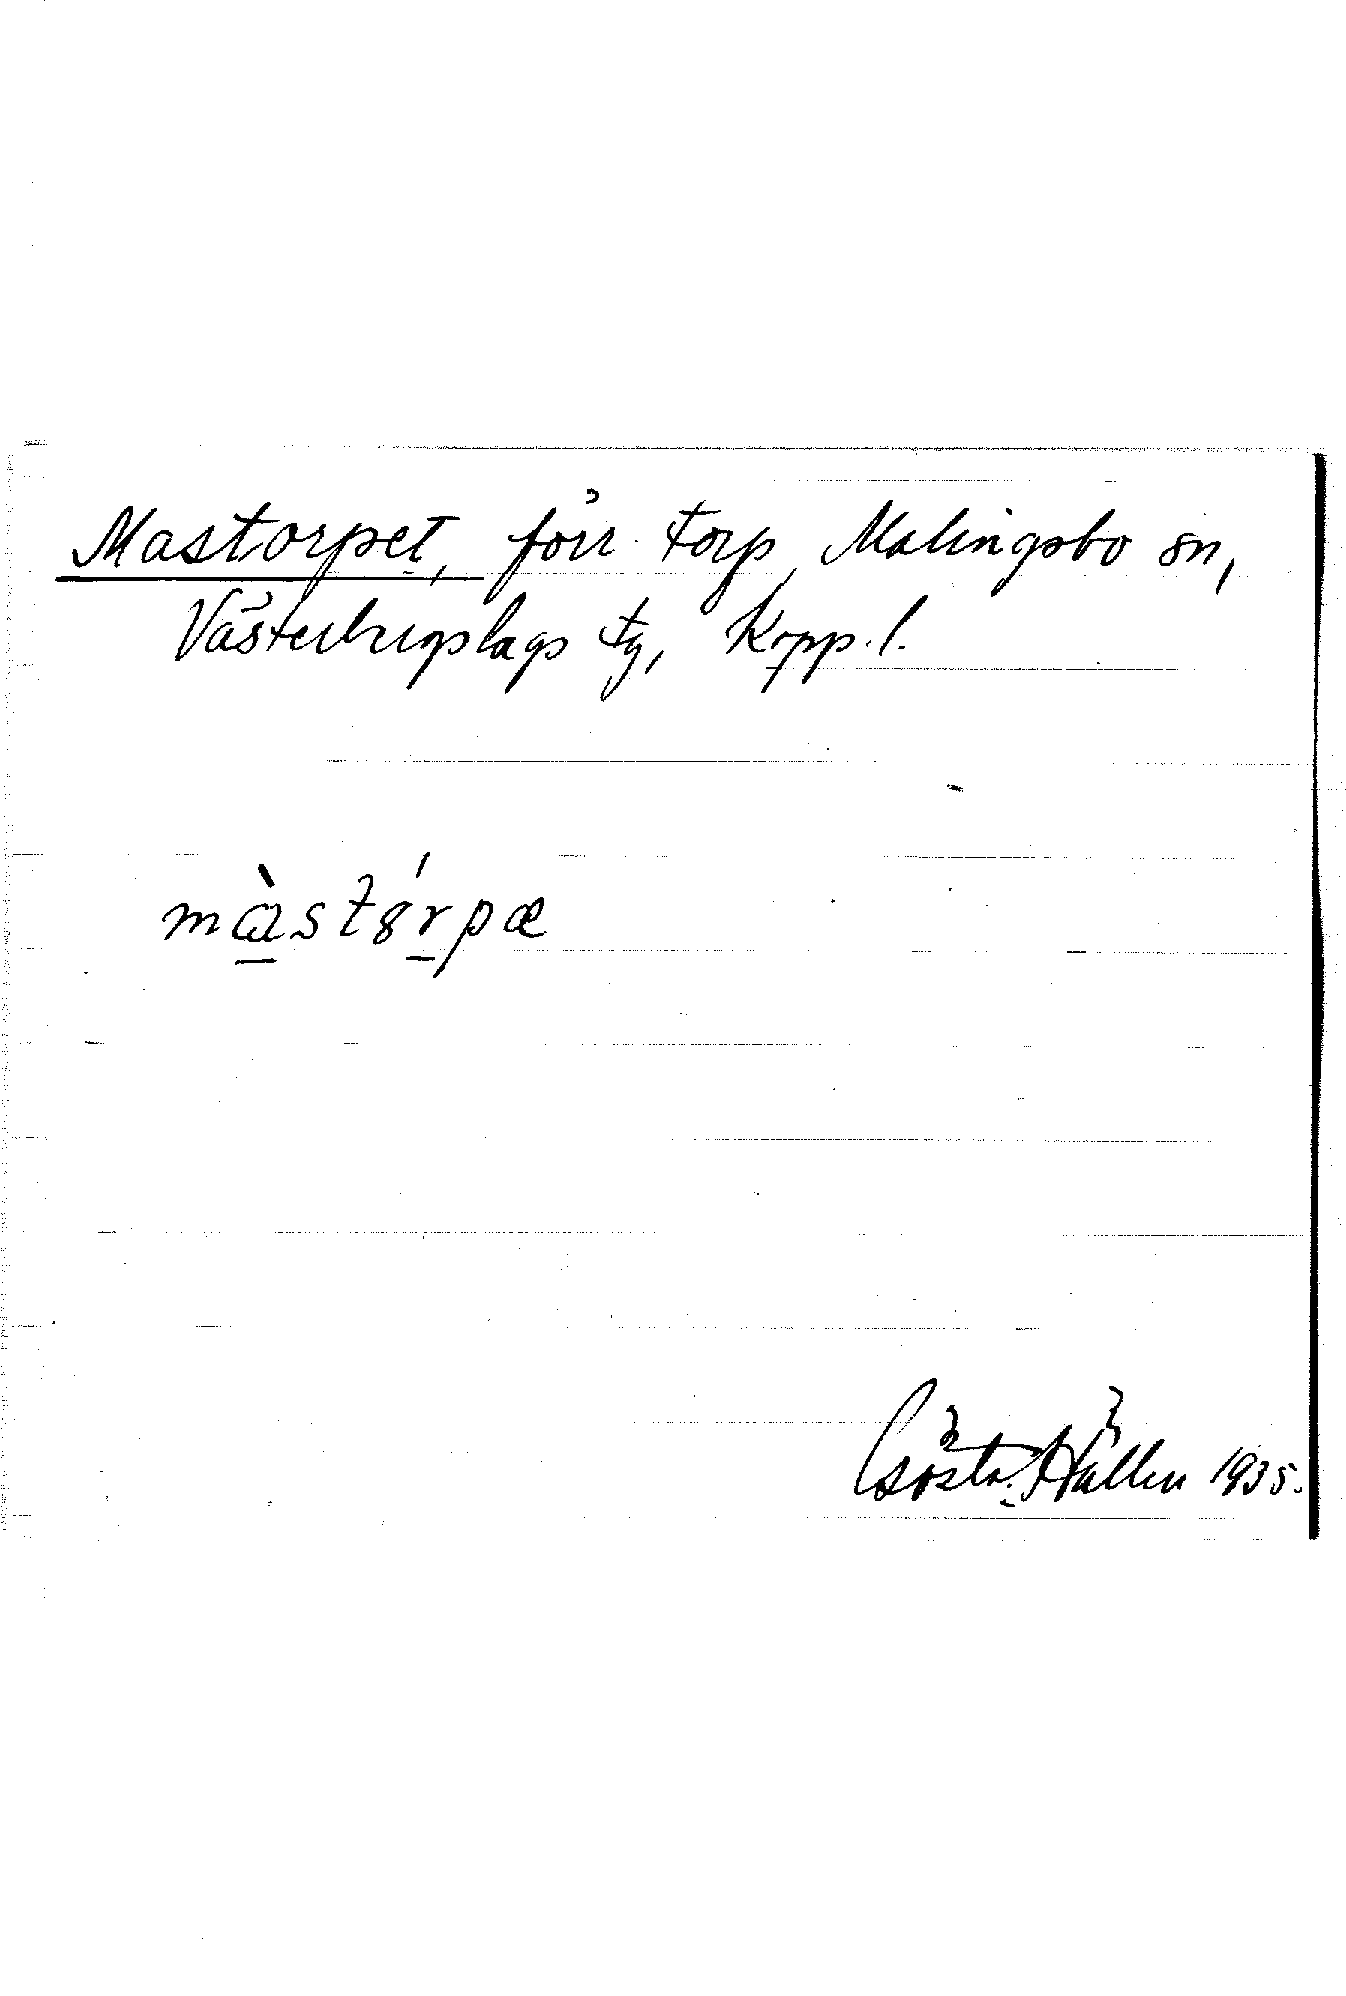 Mastorpet, förr torp, Malingsbo sn,
Västerbergslags tg, Kopp. l.
màstȣ́rpæ
Gösta Hällen 1935.